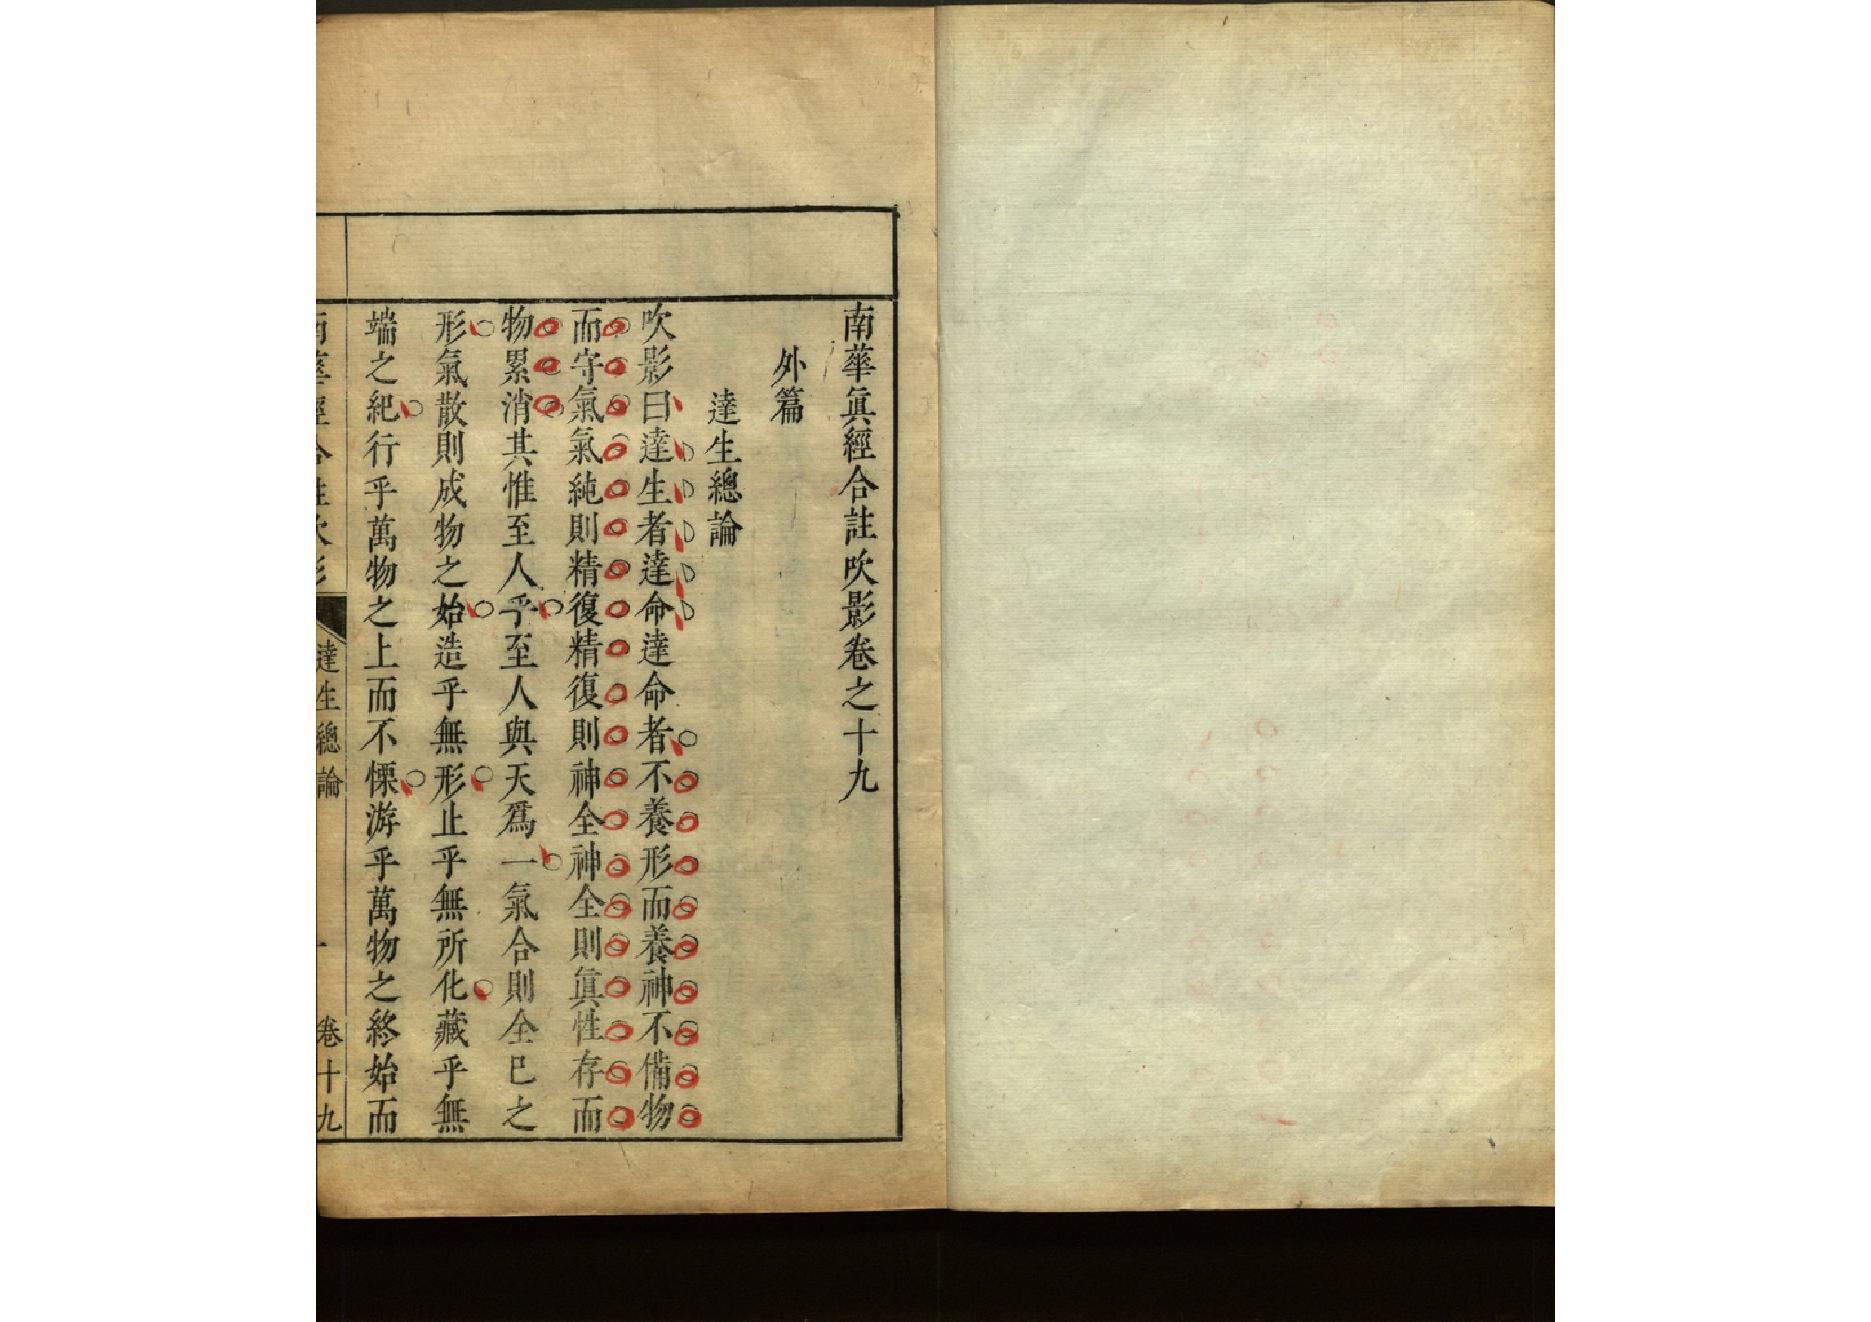 南華眞經合註吹影卷之十九
外篇
達生總論
吹影曰達生者達命達命者不養形而養神不備物
而守氣氣純則精復精復則神全神全則眞性存而
物累消其惟至人乎至人與天爲一氣合則全巳之
形氣散則成物之始造乎無形止乎無所化藏乎無
端之紀行乎萬物之上而不慄游乎萬物之終始而
達生總論
卷十九